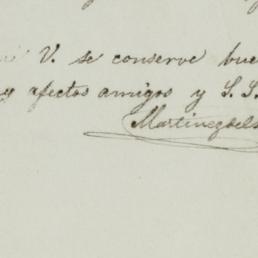 V. se conserve bue
y afectos amigos y S. S.
Martinez